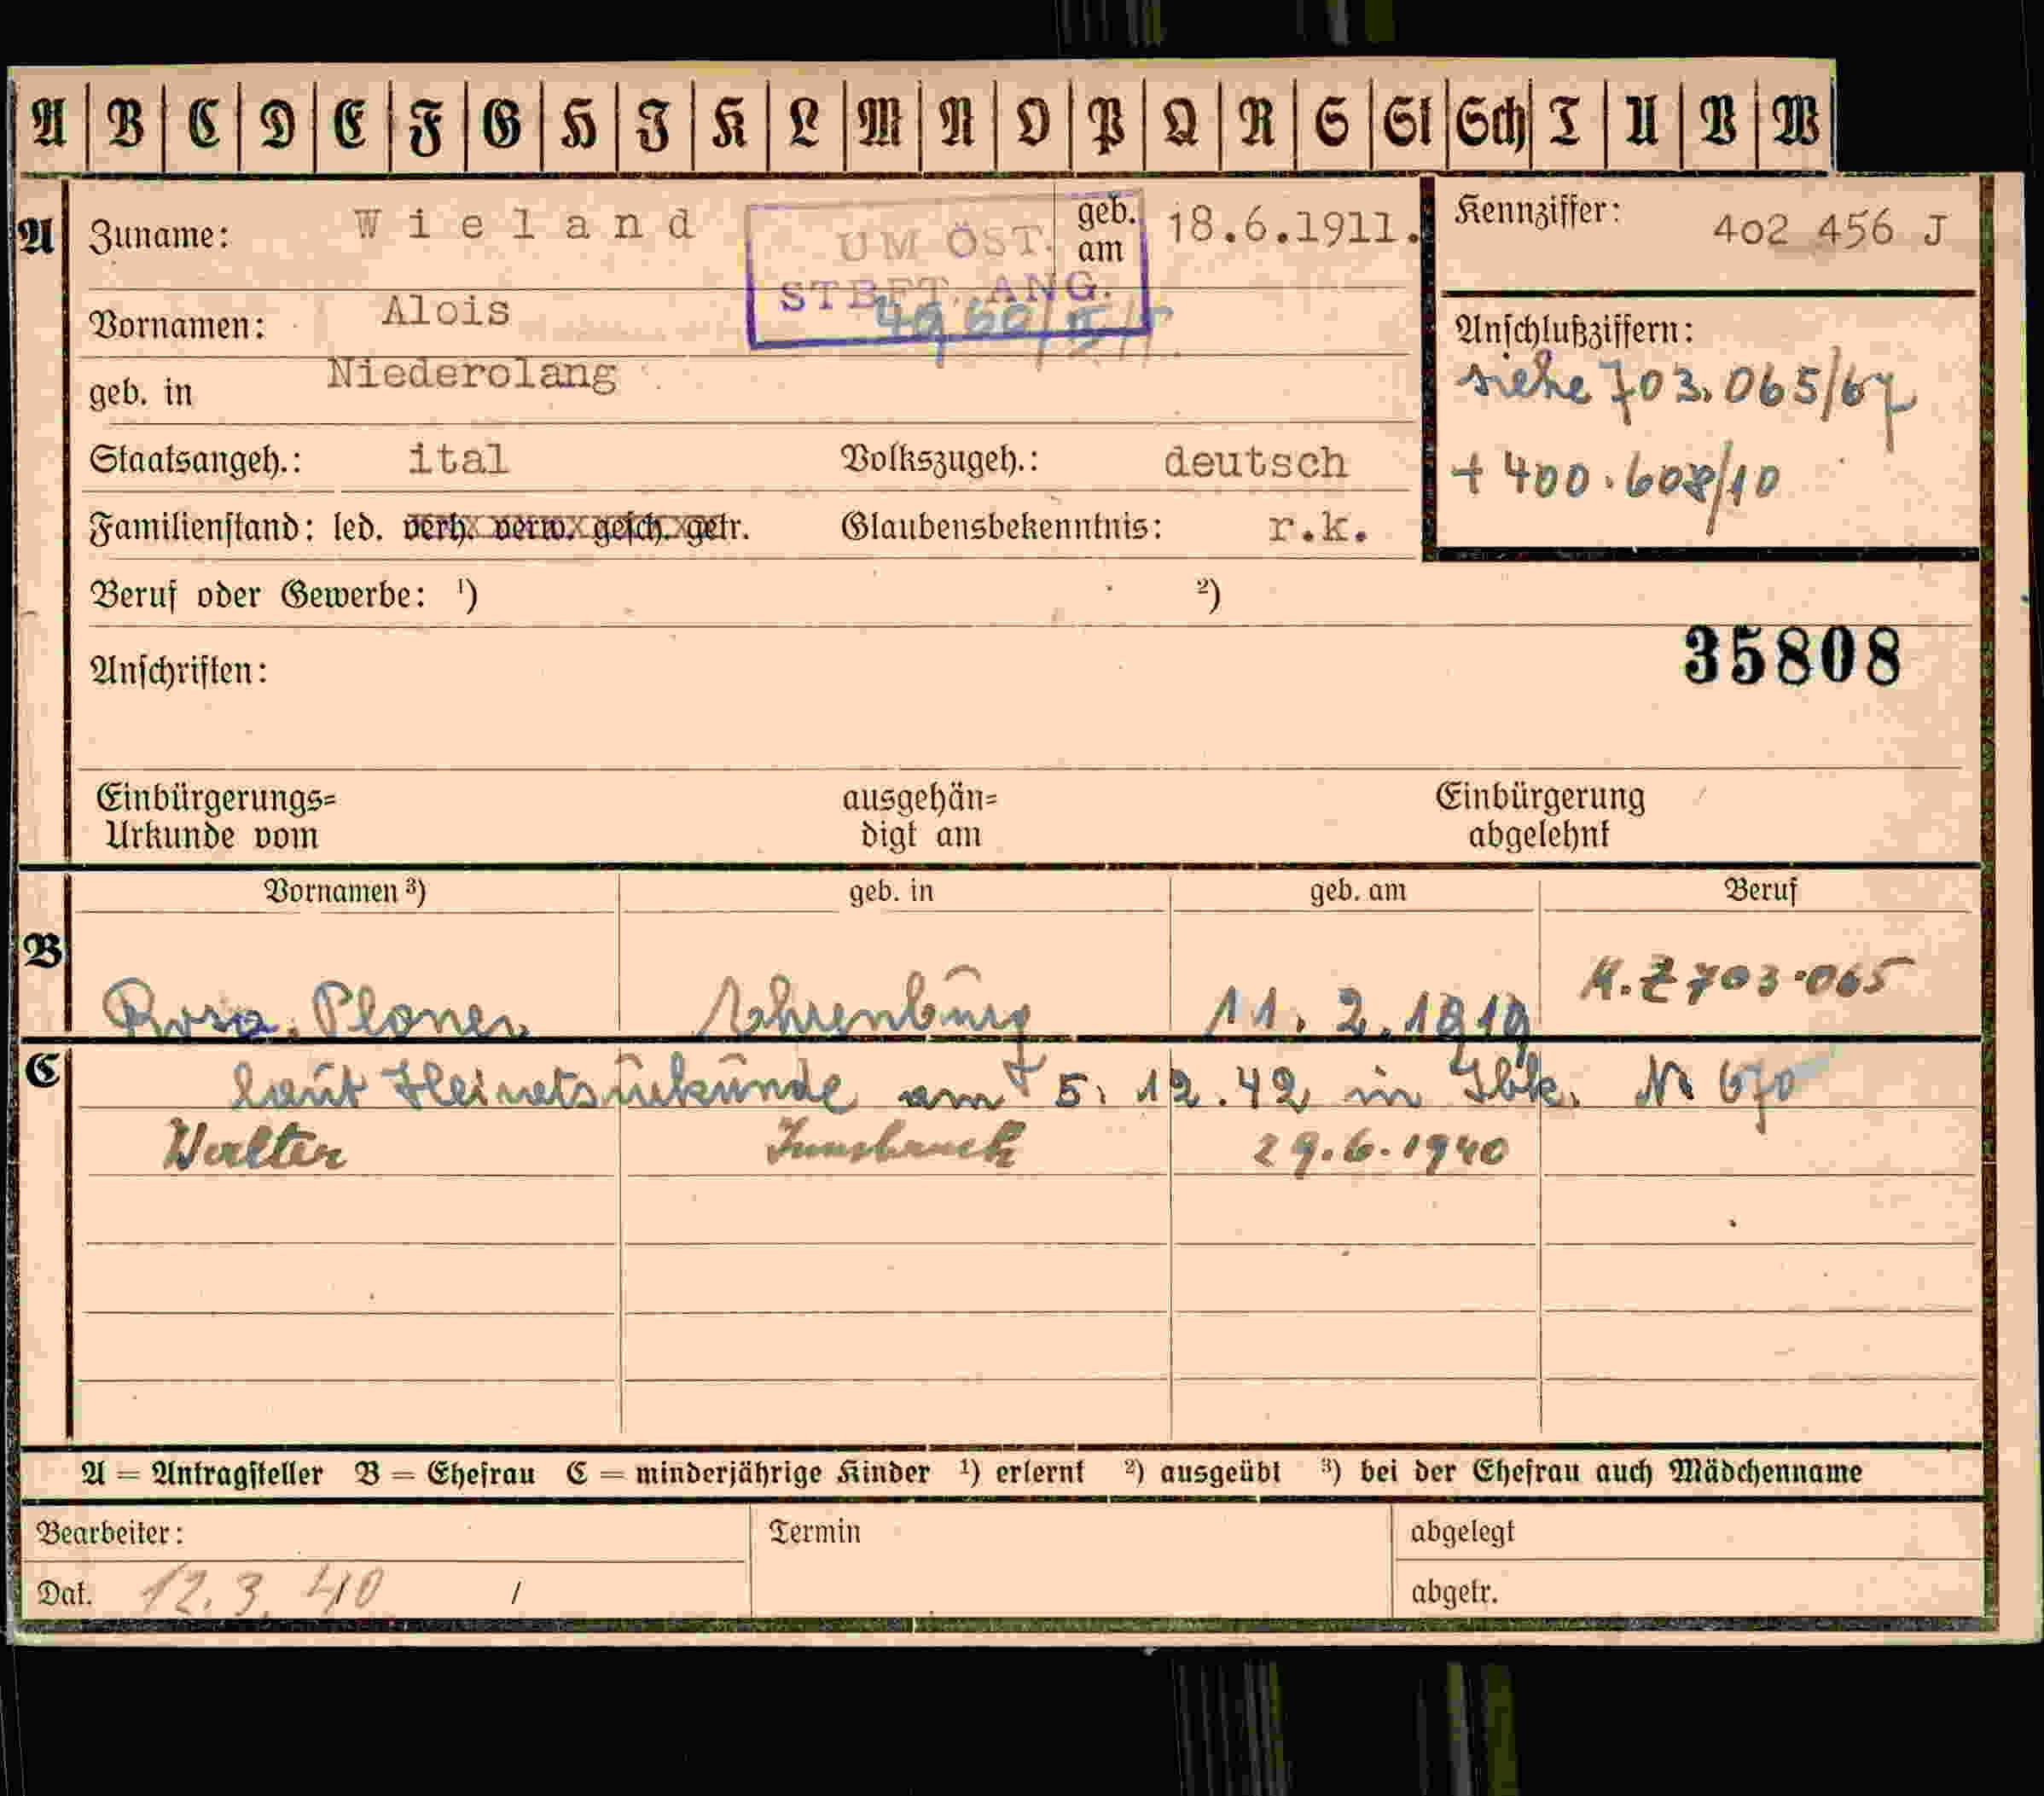 A B C D E F G H J K L M N O P Q R S St Sch T U V W
A Zuname: Wieland geb. am 18.6.1911. Kennziffer: 402 456 J
UM ÖST.
STBFT. ANG.
Vornamen: Alois
Anschlußziffern:
siehe 703.065/67
geb. in Niederolang
Staatsangeh.: ital Volkszugeh.: deutsch
+ 400.608/10
Familienstand: led. verh. verw. gesch. getr. Glaubensbekenntnis: r.k.
Beruf oder Gewerbe: 1) 2)
35808
Anschriften:
Einbürgerungs= ausgehän= Einbürgerung
Urkunde vom digt am abgelehnt
Vornamen 3) geb. in geb. am Beruf
B
Rosa Ploner Ehrenburg 11. 2. 1919 K.Z 703.065
C
laut Heiratsurkunde am 5. 12. 42 in Ibk. № 670
Walter Innsbruck 29.6.1940
A = Antragsteller B = Ehefrau C = minderjährige Kinder 1) erlernt 2) ausgeübt 3) bei der Ehefrau auch Mädchenname
Bearbeiter: Termin abgelegt
Dat. 12.3.40 / abgetr.